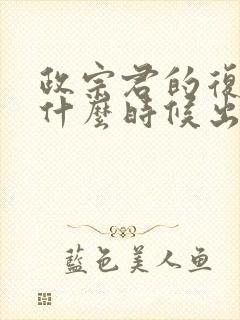 政宗君的復
什麼時候出
藍色美人鱼